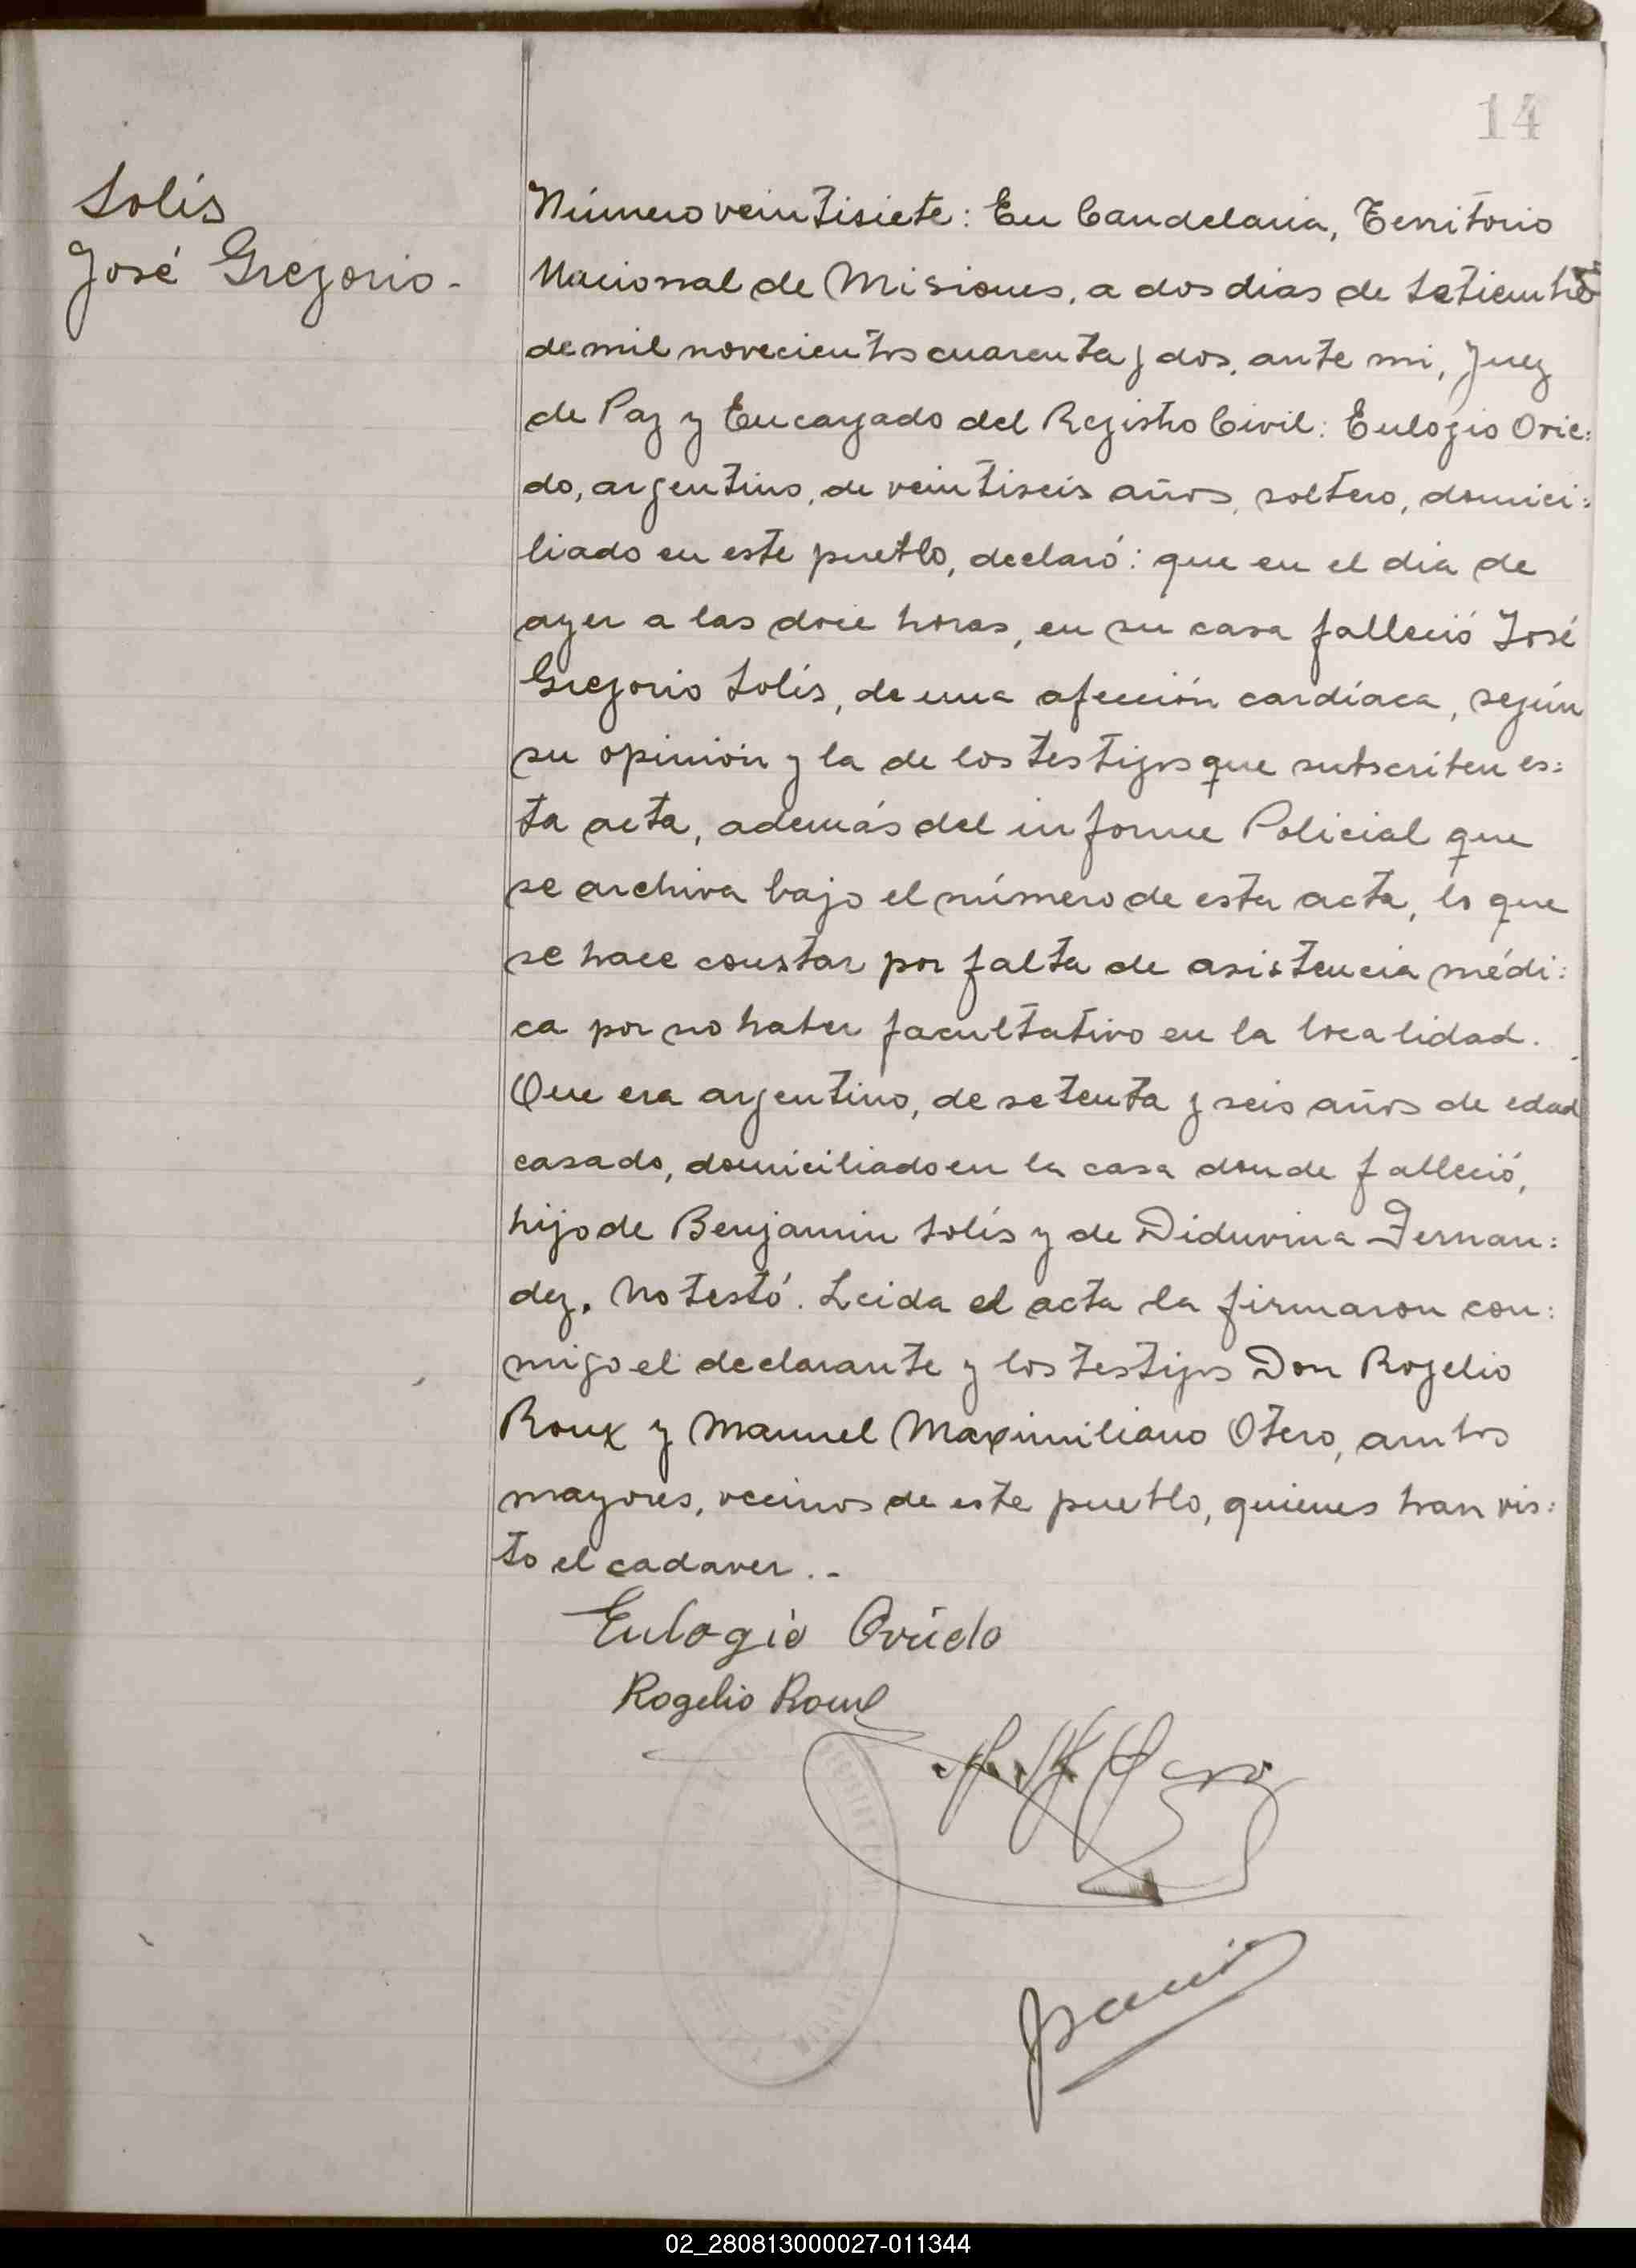 14
Solís
José Gregorio.-
Número veintisiete: En Candelaria, Territorio
Nacional de Misiones, a dos dias de Setiembre
de mil novecientos cuarenta y dos, ante mi, Juez
de Paz y Encargado del Registro Civil: Eulogio Ovie=
do, argentino, de veintiseis años, soltero, domici=
liado en este pueblo, declaró: que en el dia de
ayer a las doce horas, en su casa falleció José
Gregorio Solís, de una afección cardíaca, según
su opinión y la de los testigos que subscriben es=
ta acta, además del informe Policial que
se archiva bajo el número de esta acta, lo que
se hace constar por falta de asistencia médi=
ca por no haber facultativo en la localidad.
Que era argentino, de setenta y seis años de edad
casado, domiciliado en la casa donde falleció,
hijo de Benjamin Solís y de Diduvina Fernan=
dez. No testó. Leida el acta la firmaron con=
migo el declarante y los testigos Don Rogelio
Roux y Manuel Maximiliano Otero, ambos
mayores, vecinos de este pueblo, quienes han vis=
to el cadaver..-
Eulogio Oviedo
Rogelio Roux
02_280813000027-011344